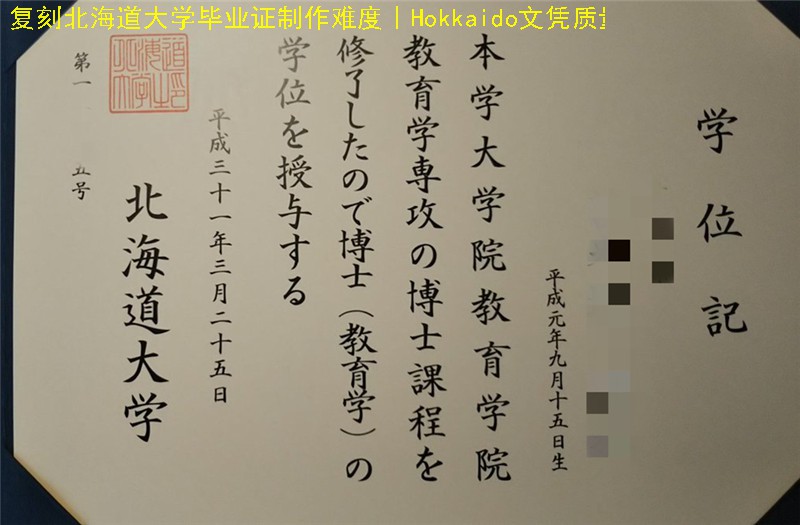 复刻北海道大学毕业证制作难度丨Hokkaido文凭质
学位記
平成元年九月十五日生
本学大学院教育学院
教育学専攻の博士課程を
修了したので博士（教育学）の
学位を授与する
平成三十一年三月二十五日
北海道大学
第一
五号